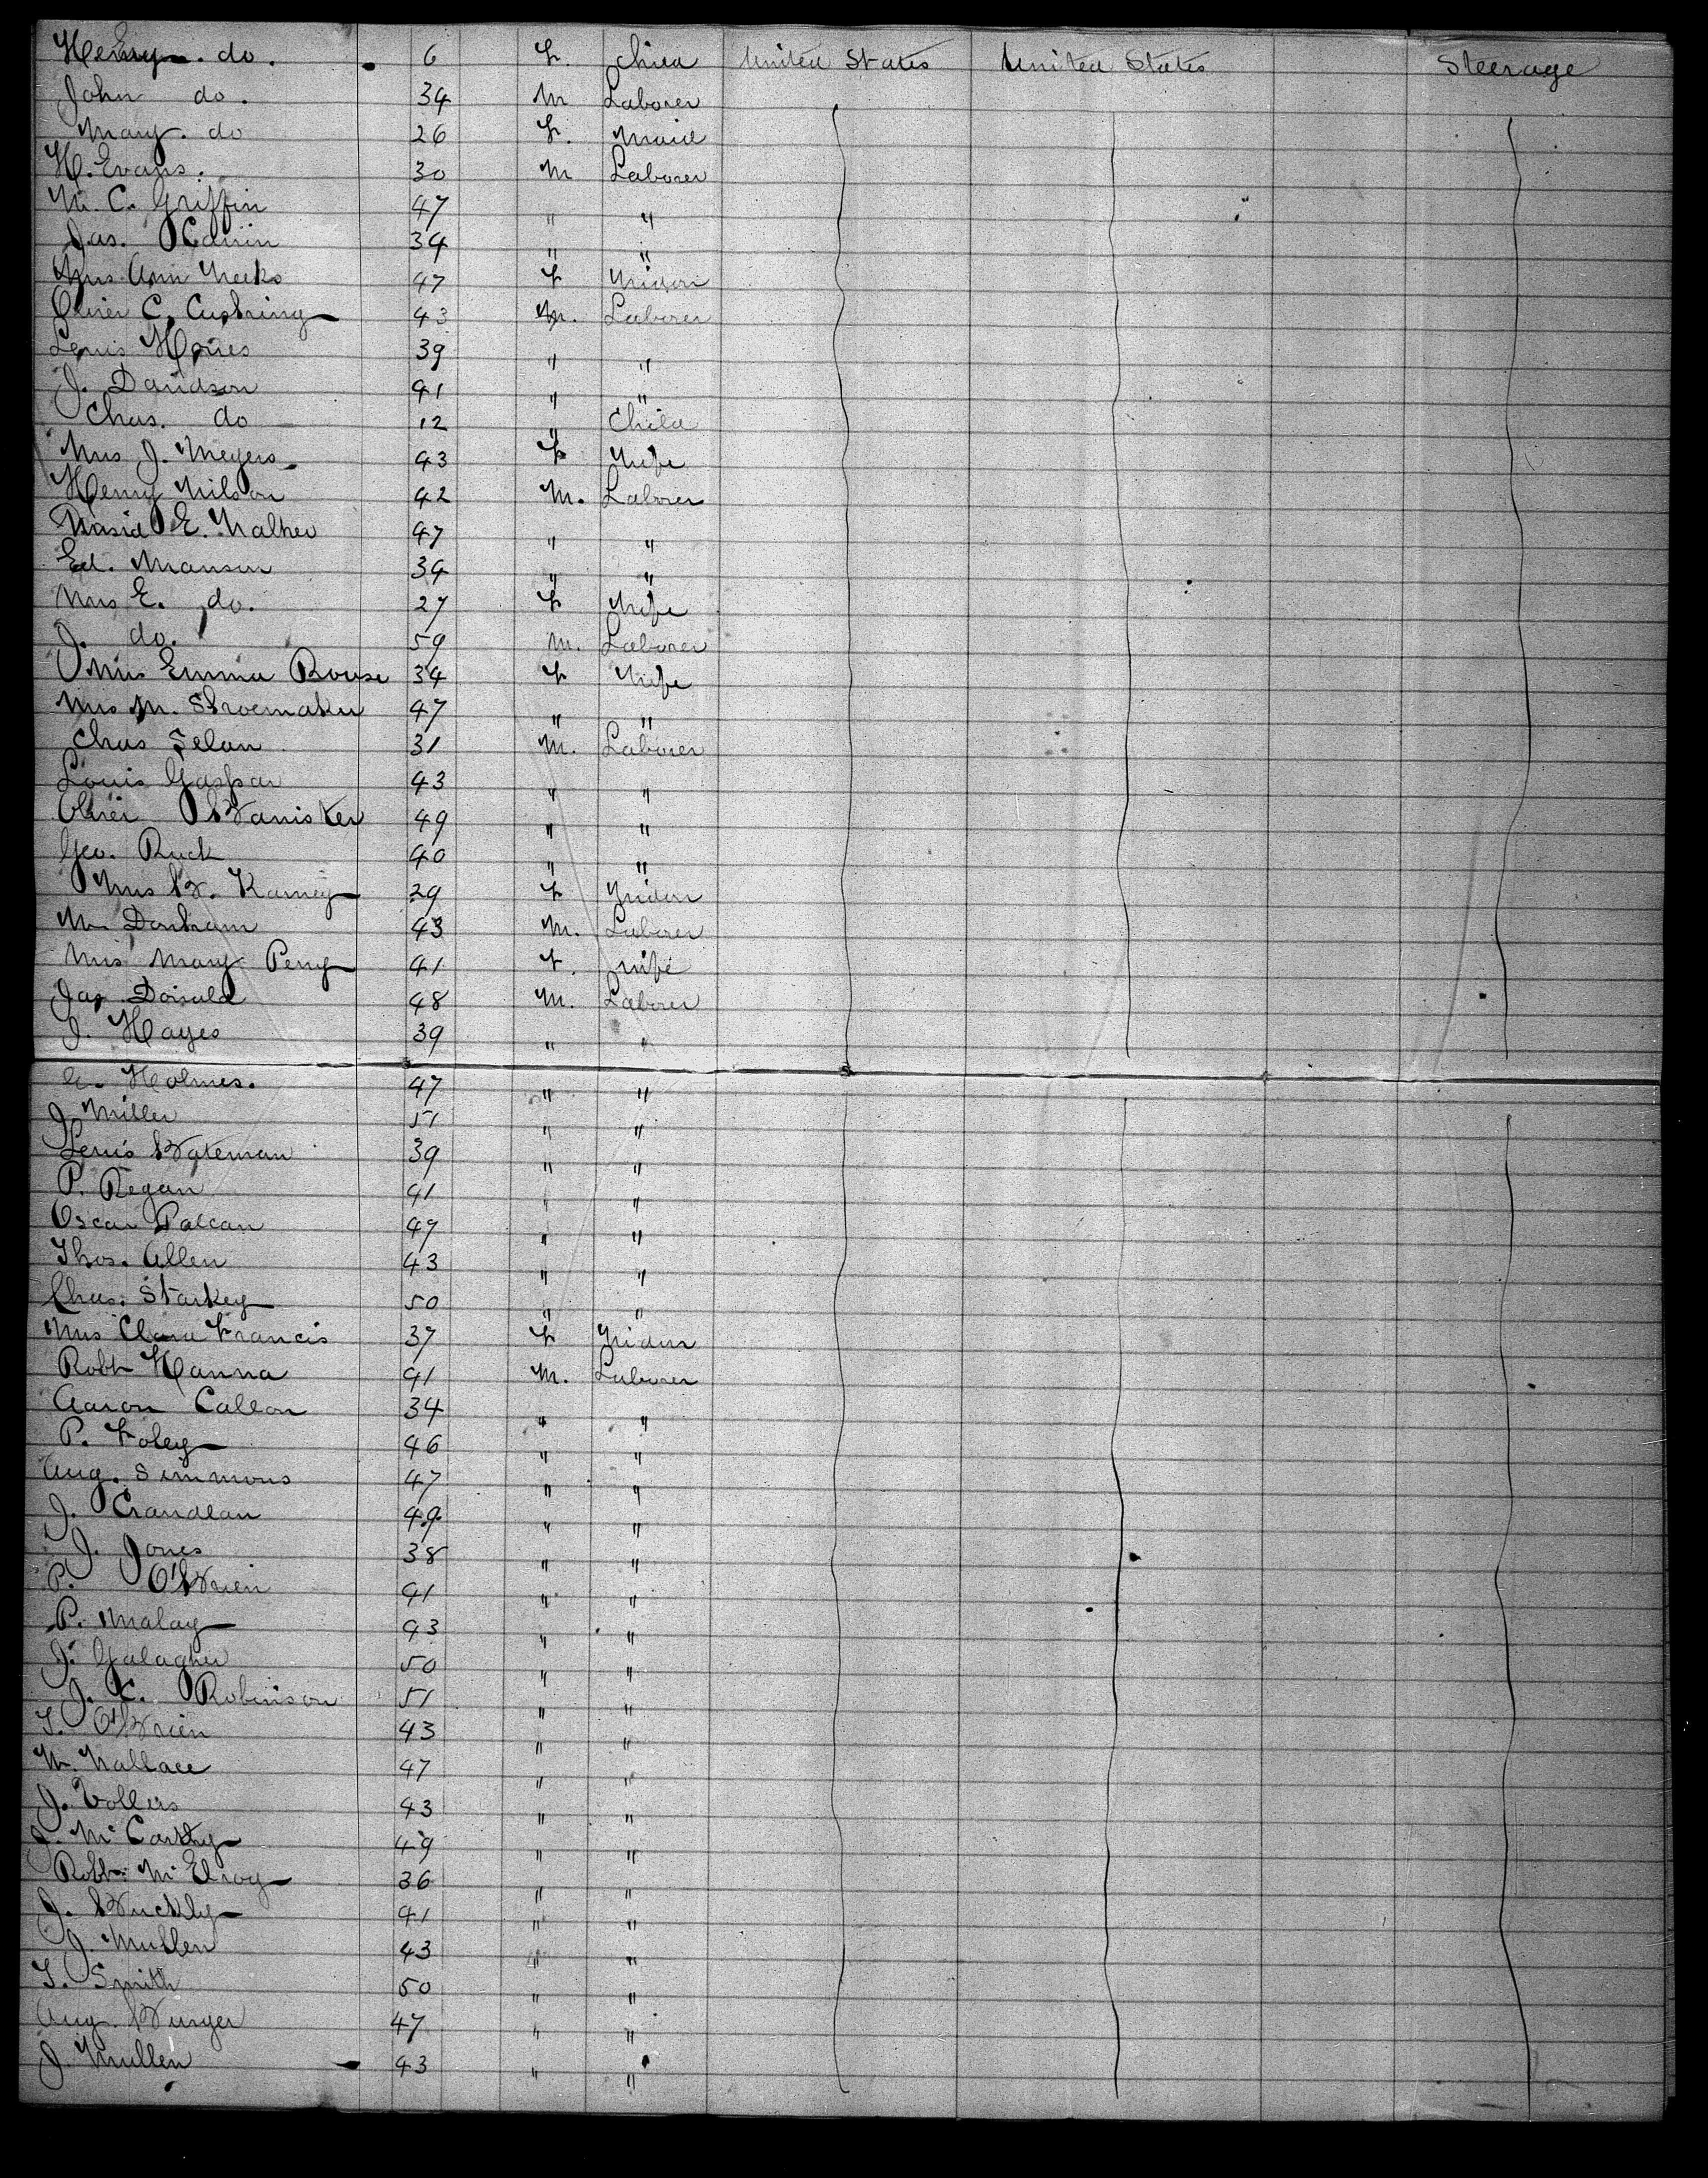 Henry do. 6 F. Child United States United States Steerage
John do. 34 M Laborer
Mary do 26 F. Maid
H. Evans. 30 M Laborer
M. C. Griffin 47 " "
Jas. 34 " "
Mrs Ann Weeks 47 F Widow
Oliver C. Cushing 43 M. Laborer
Lewis 39 " "
J. Davidson 41 " "
Chas. do 12 " Child
Mrs J. Meyers 43 F Wife
Henry Wilson 42 M. Laborer
David E. Walker 47 " "
Ed. Manson 34 " "
Mrs E. do. 27 F Wife
J. do. 59 M. Laborer
Mrs Emma Bouse 34 F Wife
Mrs M. Shoemaker 47 " "
Chas 31 M. Laborer
Louis Gaspar 43 " "
Oliver Banister 49 " "
Geo. Ruck 40 " "
Mrs B. 29 F Widow
M. 43 M. Laborer
Mrs Mary Perry 41 F. Wife
Jas. Donald 48 M. Laborer
J. Hayes 39 " "
Holmes. 47 " "
J. Miller 51 " "
Lewis Bateman 39 " "
P. Regan 41 " "
Oscar 47 " "
Thos. Allen 43 " "
Chas. Starkey 50 " "
Mrs Clara Francis 37 F Widow
Robt Hanna 41 M. Laborer
Aaron 34 " "
P. Foley 46 " "
Aug. Simmons 47 " "
J. 49 " "
J. Jones 38 " "
P. O'Brien 41 " "
P. Malay 43 " "
J. Galagher 50 " "
J. C. Robinson 51 " "
T. O'Brien 43 " "
W. Wallace 47 " "
J. Vollers 43 " "
J. McCarthy 49 " "
Robt. McElroy 36 " "
J. Buckly 41 " "
J. Mullen 43 " "
T. Smith 50 " "
Aug. Burger 47 " "
J. Mullen 43 " "